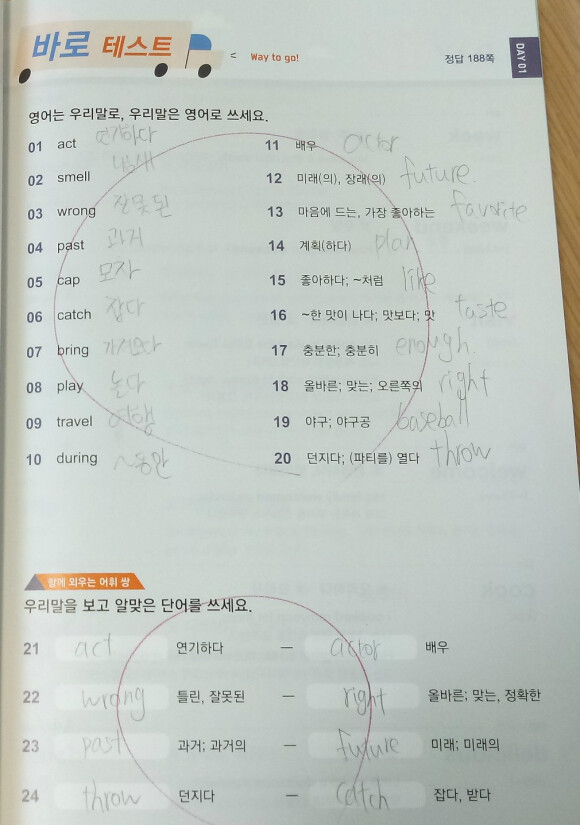 바로 테스트 < Way to go! 정답 188쪽 DAY 01
영어는 우리말로, 우리말은 영어로 쓰세요.
01 act 연기하다
02 smell 냄새
03 wrong 잘못된
04 past 과거
05 cap 모자
06 catch 잡다
07 bring 가져오다
08 play 놀다
09 travel 여행
10 during ~동안
11 배우 actor
12 미래(의), 장래(의) future.
13 마음에 드는, 가장 좋아하는 favorite
14 계획(하다) plan
15 좋아하다; ~처럼 like
16 ~한 맛이 나다; 맛보다; 맛 taste
17 충분한; 충분히 enough.
18 올바른; 맞는; 오른쪽의 right
19 야구; 야구공 baseball
20 던지다; (파티를) 열다 throw
함께 외우는 어휘 쌍
우리말을 보고 알맞은 단어를 쓰세요.
21 act 연기하다 — actor 배우
22 wrong 틀린, 잘못된 — right 올바른; 맞는, 정확한
23 past 과거; 과거의 — future 미래; 미래의
24 throw 던지다 — catch 잡다, 받다